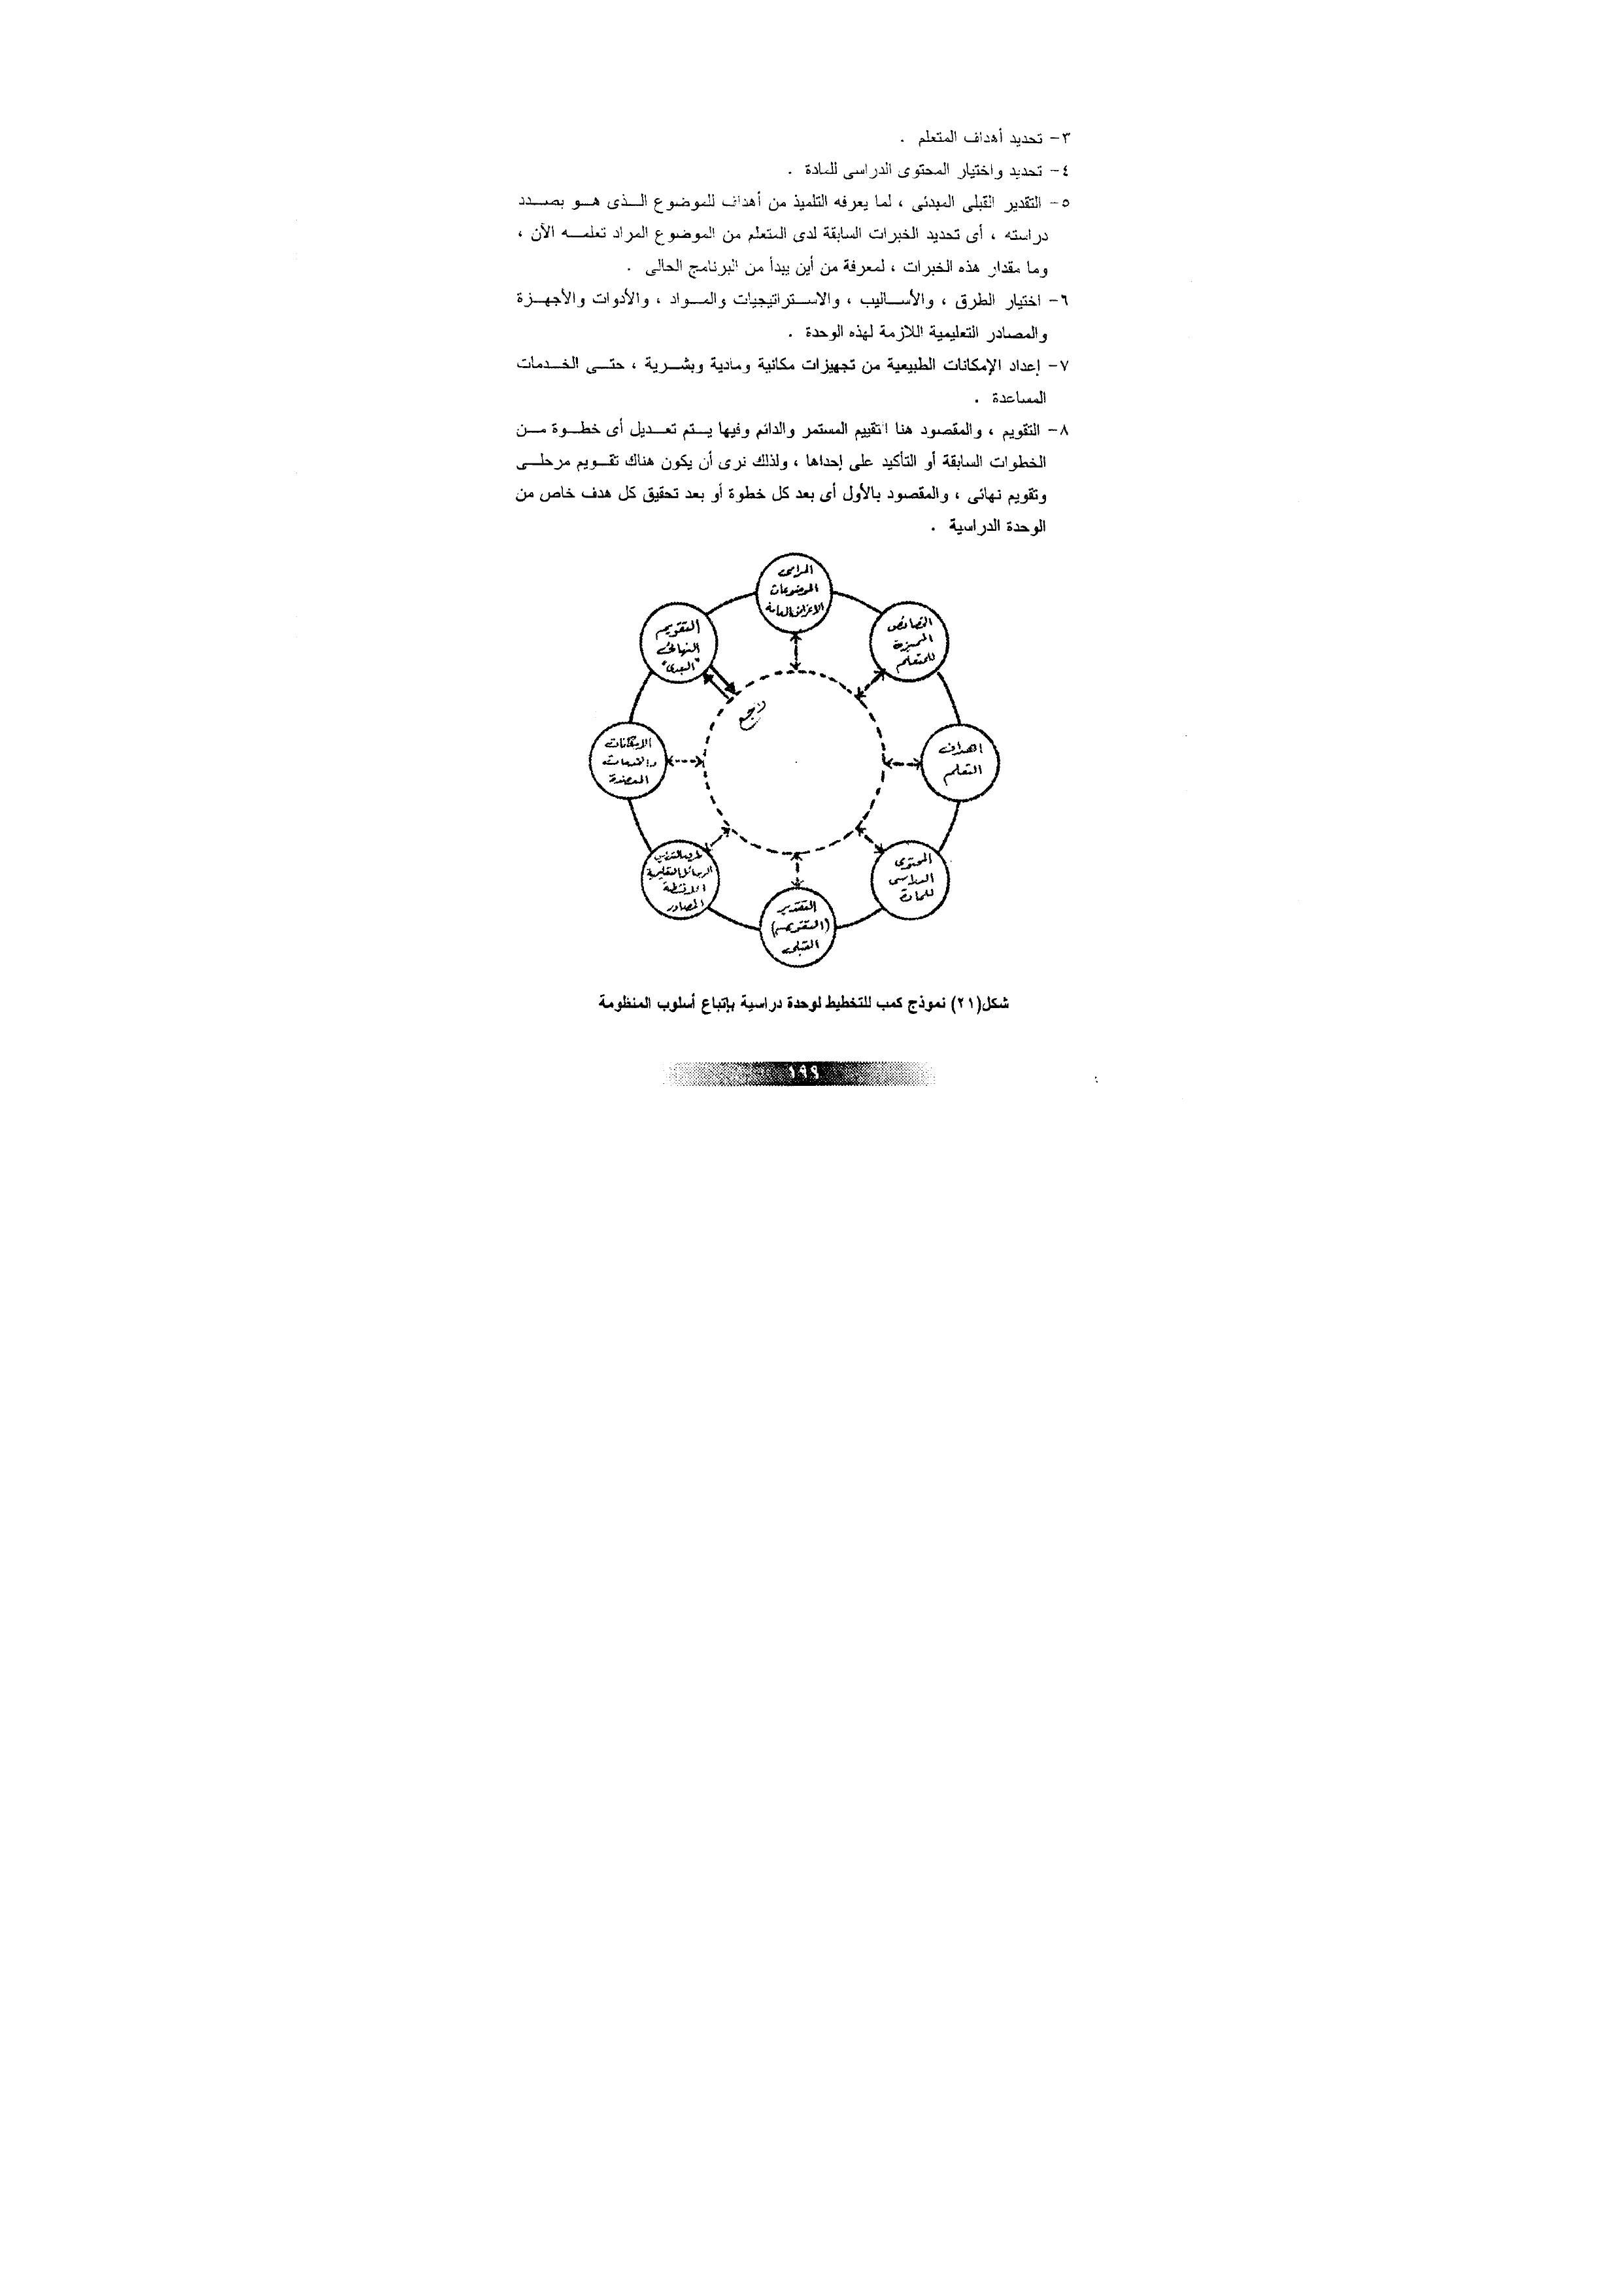 ٣- تحديد أهداف المتعلم .
٤- تحديد واختيار المحتوى الدراسى للمادة .
٥- التقدير القبلى المبدئى ، لما يعرفه التلميذ من أهداف للموضوع الـذى هـو بصـدد
دراسته ، أى تحديد الخبرات السابقة لدى المتعلم من الموضوع المراد تعلمـه الآن ،
وما مقدار هذه الخبرات ، لمعرفة من أين يبدأ من البرنامج الحالى .
٦- اختيار الطرق ، والأسـاليب ، والاسـتراتيجيات والمـواد ، والأدوات والأجهـزة
والمصادر التعليمية اللازمة لهذه الوحدة .
٧- إعداد الإمكانات الطبيعية من تجهيزات مكانية ومادية وبشـرية ، حتـى الخـدمات
المساعدة .
٨- التقويم ، والمقصود هنا التقييم المستمر والدائم وفيها يـتم تعـديل أى خطـوة مـن
الخطوات السابقة أو التأكيد على إحداها ، ولذلك نرى أن يكون هناك تقـويم مرحلـى
وتقويم نهائى ، والمقصود بالأول أى بعد كل خطوة أو بعد تحقيق كل هدف خاص من
الوحدة الدراسية .
المرامى
الموضوعات
الأغراض العامة
الخصائص
المميزة
للمتعلم
اهداف
التعلم
المحتوى
الدراسى
للمادة
التقدير
(التقويم)
القبلى
طرق التدريس
الوسائل التعليمية
الأنشطة
المصادر
الإمكانات
والخدمات
التقويم
النهائى
"البعدى"
شكل(٢١) نموذج كمب للتخطيط لوحدة دراسية بإتباع أسلوب المنظومة
١٩٩